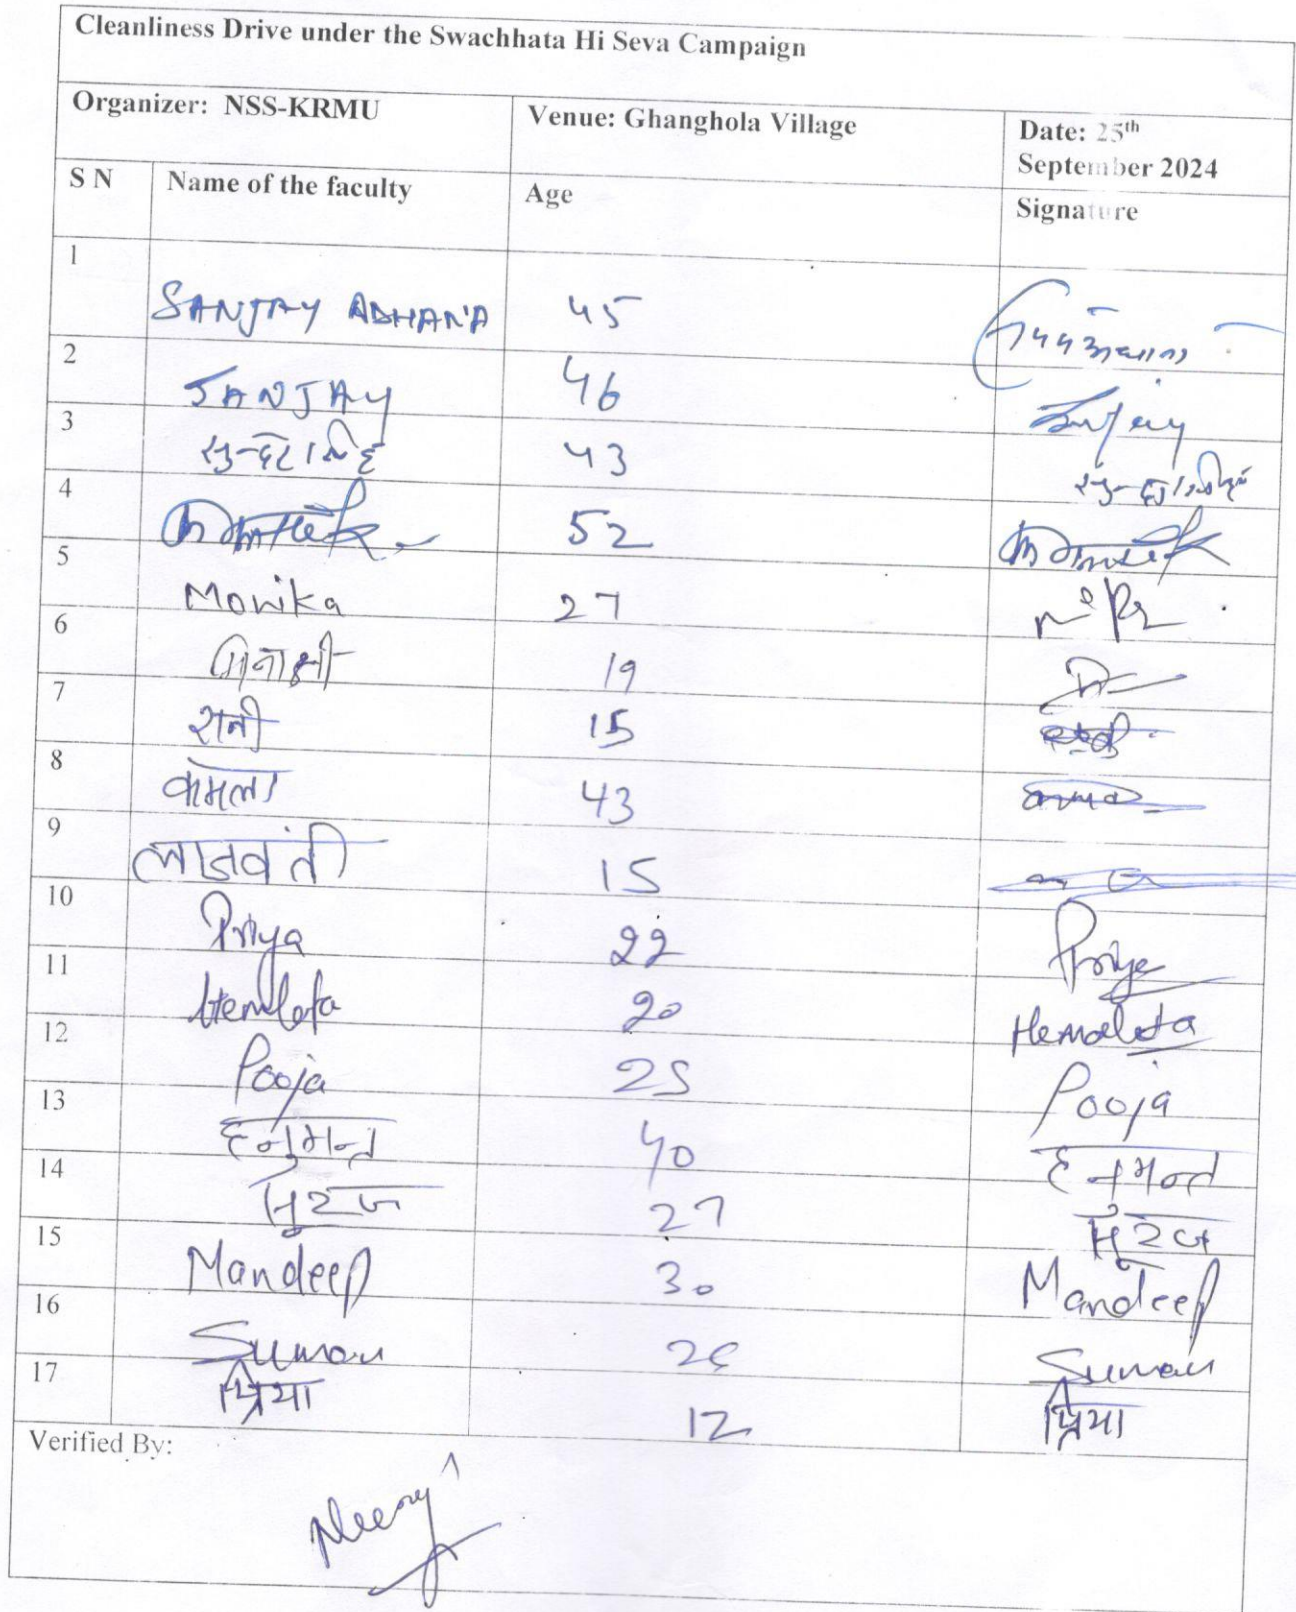 Cleanliness Drive under the Swachhata Hi Seva Campaign
Organizer: NSS-KRMU Venue: Ghanghola Village Date: 25th September 2024
S N Name of the faculty Age Signature
1 SANJAY ADHANA 45
2 SANJAY 46 Sanjay
3 43
4 52
5 Monika 27
6 मिनाक्षी 19
7 रानी 15
8 कमला 43
9 लाजवंती 15
10 Priya 22 Priya
11 Hemlata 20 Hemalata
12 Pooja 25 Pooja
13 हनुमन्त 40 हनुमन्त
14 27
15 Mandeep 30 Mandeep
16 Suman Suman
17 प्रिया 12 प्रिया
Verified By:
Neeraj